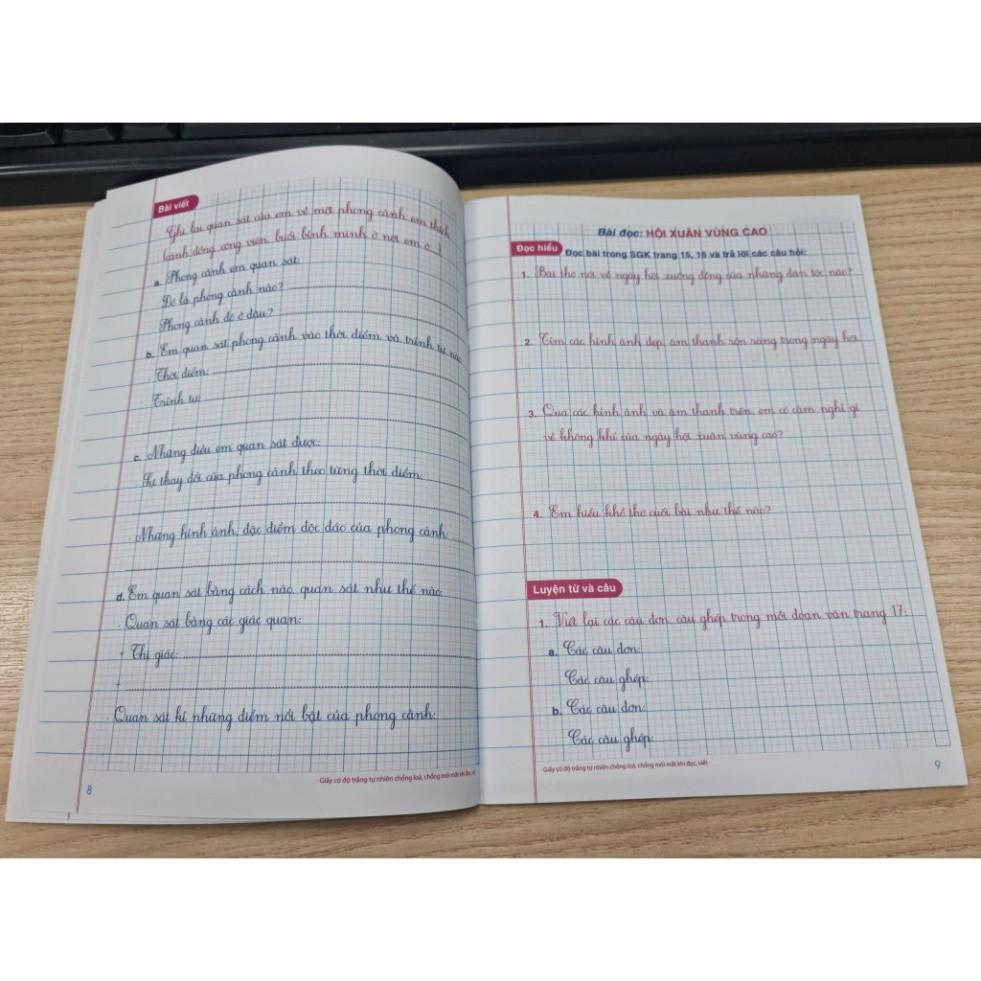 Bài viết
Ghi lại quan sát của em về một phong cảnh em thích
(cánh đồng, công viên, buổi bình minh ở nơi em ở...)
a. Phong cảnh em quan sát:
Đó là phong cảnh nào?
Phong cảnh đó ở đâu?
b. Em quan sát phong cảnh vào thời điểm và trình tự nào:
Thời điểm:
Trình tự:
c. Những điều em quan sát được:
Sự thay đổi của phong cảnh theo từng thời điểm:
Những hình ảnh, đặc điểm độc đáo của phong cảnh:
d. Em quan sát bằng cách nào, quan sát như thế nào:
Quan sát bằng các giác quan:
+ Thị giác:
+
Quan sát kĩ những điểm nổi bật của phong cảnh:
Giấy có độ trắng tự nhiên chống loá, chống mỏi mắt khi đọc,
8
Bài đọc: HỘI XUÂN VÙNG CAO
Đọc hiểu Đọc bài trong SGK trang 15, 16 và trả lời các câu hỏi:
1. Bài thơ nói về ngày hội xuống đồng của những dân tộc nào?
2. Tìm các hình ảnh đẹp, âm thanh rộn ràng trong ngày hội.
3. Qua các hình ảnh và âm thanh trên, em có cảm nghĩ gì
về không khí của ngày hội xuân vùng cao?
4. Em hiểu khổ thơ cuối bài như thế nào?
Luyện từ và câu
1. Viết lại các câu đơn, câu ghép trong mỗi đoạn văn trang 17:
a. Các câu đơn:
Các câu ghép:
b. Các câu đơn:
Các câu ghép:
Giấy có độ trắng tự nhiên chống loá, chống mỏi mắt khi đọc, viết
9